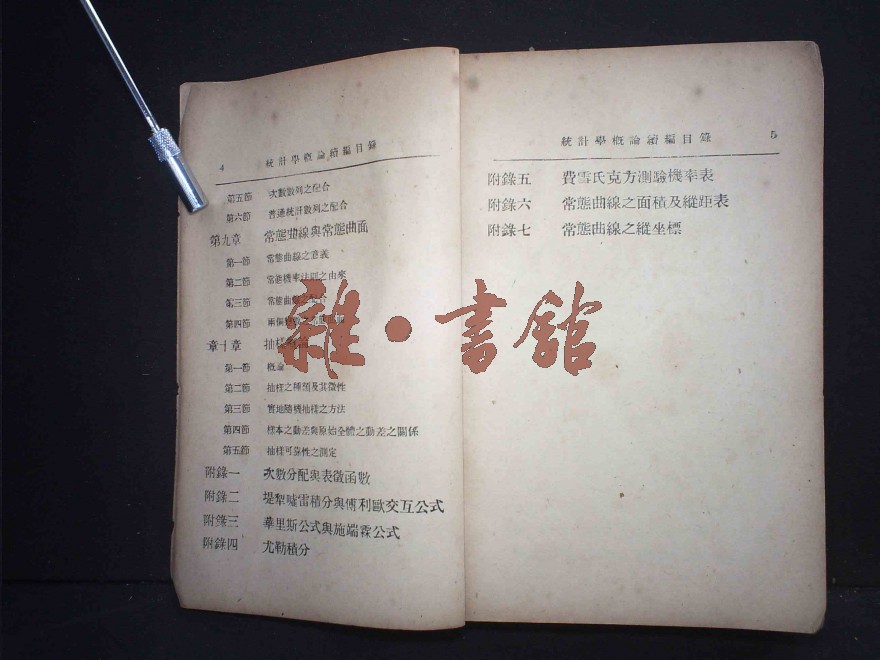 4 統計學概論續編目錄
第五節 次數數列之配合
第六節 普通統計數列之配合
第九章 常態曲線與常態曲面
第一節 常態曲線之意義
第二節 常態機率法則之由來
第三節 常態曲線之配合
第四節 兩個
章十章 抽樣
第一節 概論
第二節 抽樣之種類及其徵性
第三節 實地隨機抽樣之方法
第四節 樣本之動差與原始全體之動差之關係
第五節 抽樣可靠性之測定
附錄一 次數分配與表徵函數
附錄二 堤犁噓雷積分與傅利歐交互公式
附錄三 華里斯公式與施端霖公式
附錄四 尤勒積分
統計學概論續編目錄 5
附錄五 費雪氏克方測驗機率表
附錄六 常態曲線之面積及縱距表
附錄七 常態曲線之縱坐標
雜·書館